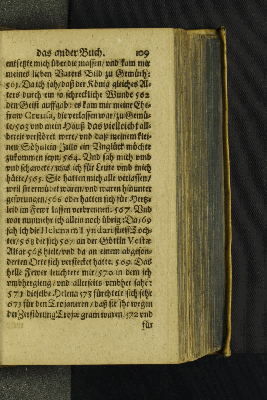 das ander Buch. 109
entsetzte mich über die massen/ und kam mir
meines lieben Vaters Bild zu Gemüth:
561. Da ich sah/ daß der König gleiches Al-
ters durch ein so schreckliche Wunde 562
den Geist auffgab: es kam mir meine Ehe-
fraw Creusa, die verlassen war/ zu Gemü-
te/ 563 und mein Hauß das vielleicht all-
bereit verstöret were/ und daß meinem klei-
nen Söhnlein Julo ein Unglück möcht
zukommen seyn. 564. Und sah mich umb
und schawete/ was ich für Leute umb mich
hätte/ 565. Sie hatten mich alle verlassen/
weil sie ermüdet waren/ und waren hinunter
gesprungen/ 566 oder hatten sich für Hertz-
leid im Fewr lassen verbrennen. 567. Und
war nunmehr ich allein noch übrig: Da
sah ich die Helenam Tyndari Toch-
ter/ 568 die sich/ 567 an der Göttin Vestæ
Altar 568 hielt/ und da an einem abgeson-
derten Orte sich verstecket hatte. 569. Das
helle Fewer leuchtete mir/ 570 in dem ich
umbhergieng/ und allerseits umbher sahe:
571 dieselbe Helena 573 fürchtete sich sehr
671 für den Trojanern/ daß sie ihr wegen
der Zerstörung Trojæ gram waren/ 572 und
für